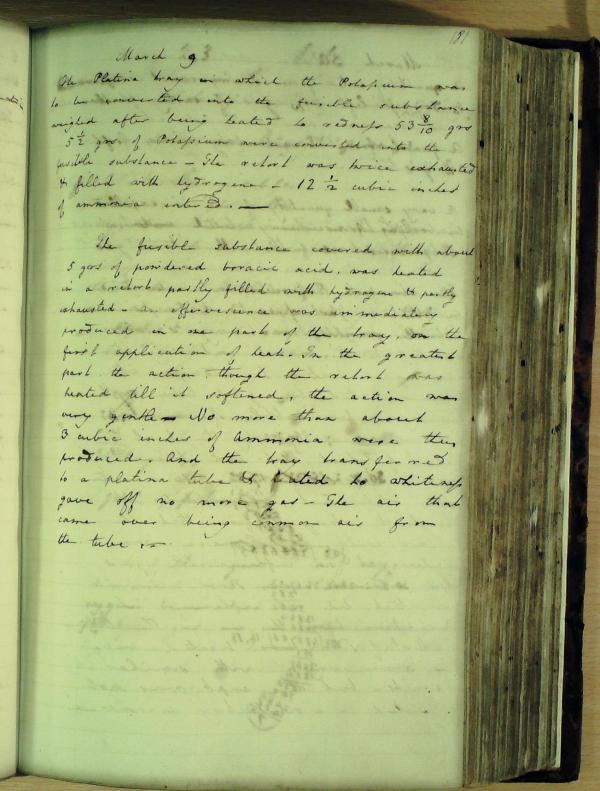 181
March 9
The Platina tray in which the Potassium was
to be converted into the fusible substance
weighed after being heated to redness 53 8/10 grs
5 1/2 grs of Potassium were converted into the
fusible substance - The retort was twice exhausted
& filled with hydrogene - 12 1/2 cubic inches
of ammonia entered. —
The fusible substance covered with about
5 grs of powdered boracic acid, was heated
in a retort partly filled with hydrogene & partly
exhausted - an effervescence was immediately
produced in one part of the tray, on the
first application of heat. In the greatest
part the action, though the retort was
heated till it softened, the action was
very gentle - No more than about
3 cubic inches of Ammonia were thus
produced. And the tray transferred
to a platina tube & heated to whiteness
gave off no more gas - The air that
came over being common air from
the tube